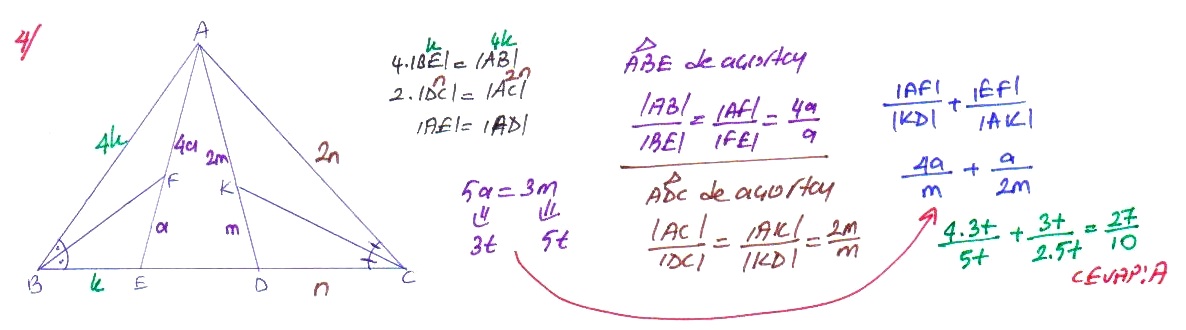 4/
A
4k
4a
2m
2n
F
K
a
m
B
k
E
D
n
C
k
4k
4.|BE| = |AB|
n
2n
2.|DC| = |AC|
|AE| = |AD|
5a = 3m
⇓ ⇓
3t 5t
ABE de açıortay
|AB|/|BE| = |AF|/|FE| = 4a/a
ADC de açıortay
|AC|/|DC| = |AK|/|KD| = 2m/m
|AF|/|KD| + |EF|/|AK|
4a/m + a/2m
4.3t/5t + 3t/2.5t = 27/10
CEVAP:A